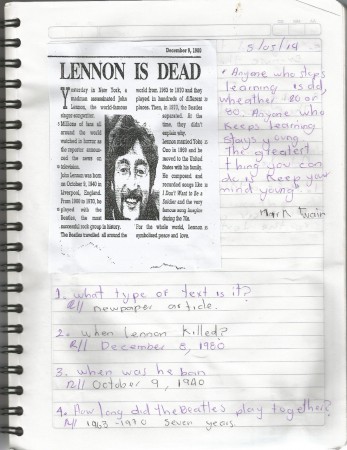 December 9, 1980
LENNON IS DEAD
Yesterday in New York, a
madman assassinated John
Lennon, the world-famous
singer-songwriter.
Millions of fans all
around the world
watched in horror as
the reporter announ-
and the news on
television.
John Lennon was born
on October 9, 1940 in
Liverpool, England.
From 1960 to 1970, he
played with the
Beatles, the most
successful rock group in history.
The Beatles travelled all around the
world from 1963 to 1970 and they
played in hundreds of different
places. Then, in 1970, the Beatles
separated. At the
time, they didn't
explain why.
Lennon married Yoko
Ono in 1969 and he
moved to the United
States with his family.
He composed and
recorded songs like
I Don't Want to Be a
Soldier and the very
famous song Imagine
during the 70s.
For the whole world, Lennon is
symbolised peace and love.
5/05/14
"Anyone who stops
learning is old,
wheather 20 or
80. Anyone who
keeps learning
stays young
the greatest
thing you can
do is keep you
mind young"
Mark Twain
1. what type of text is it?
R// newspaper article.
2. when Lennon killed?
R// December 8, 1980
3. when was he born
R// October 9, 1940
4. How long did the Beatles play together?
R// 1963-1970 seven years.